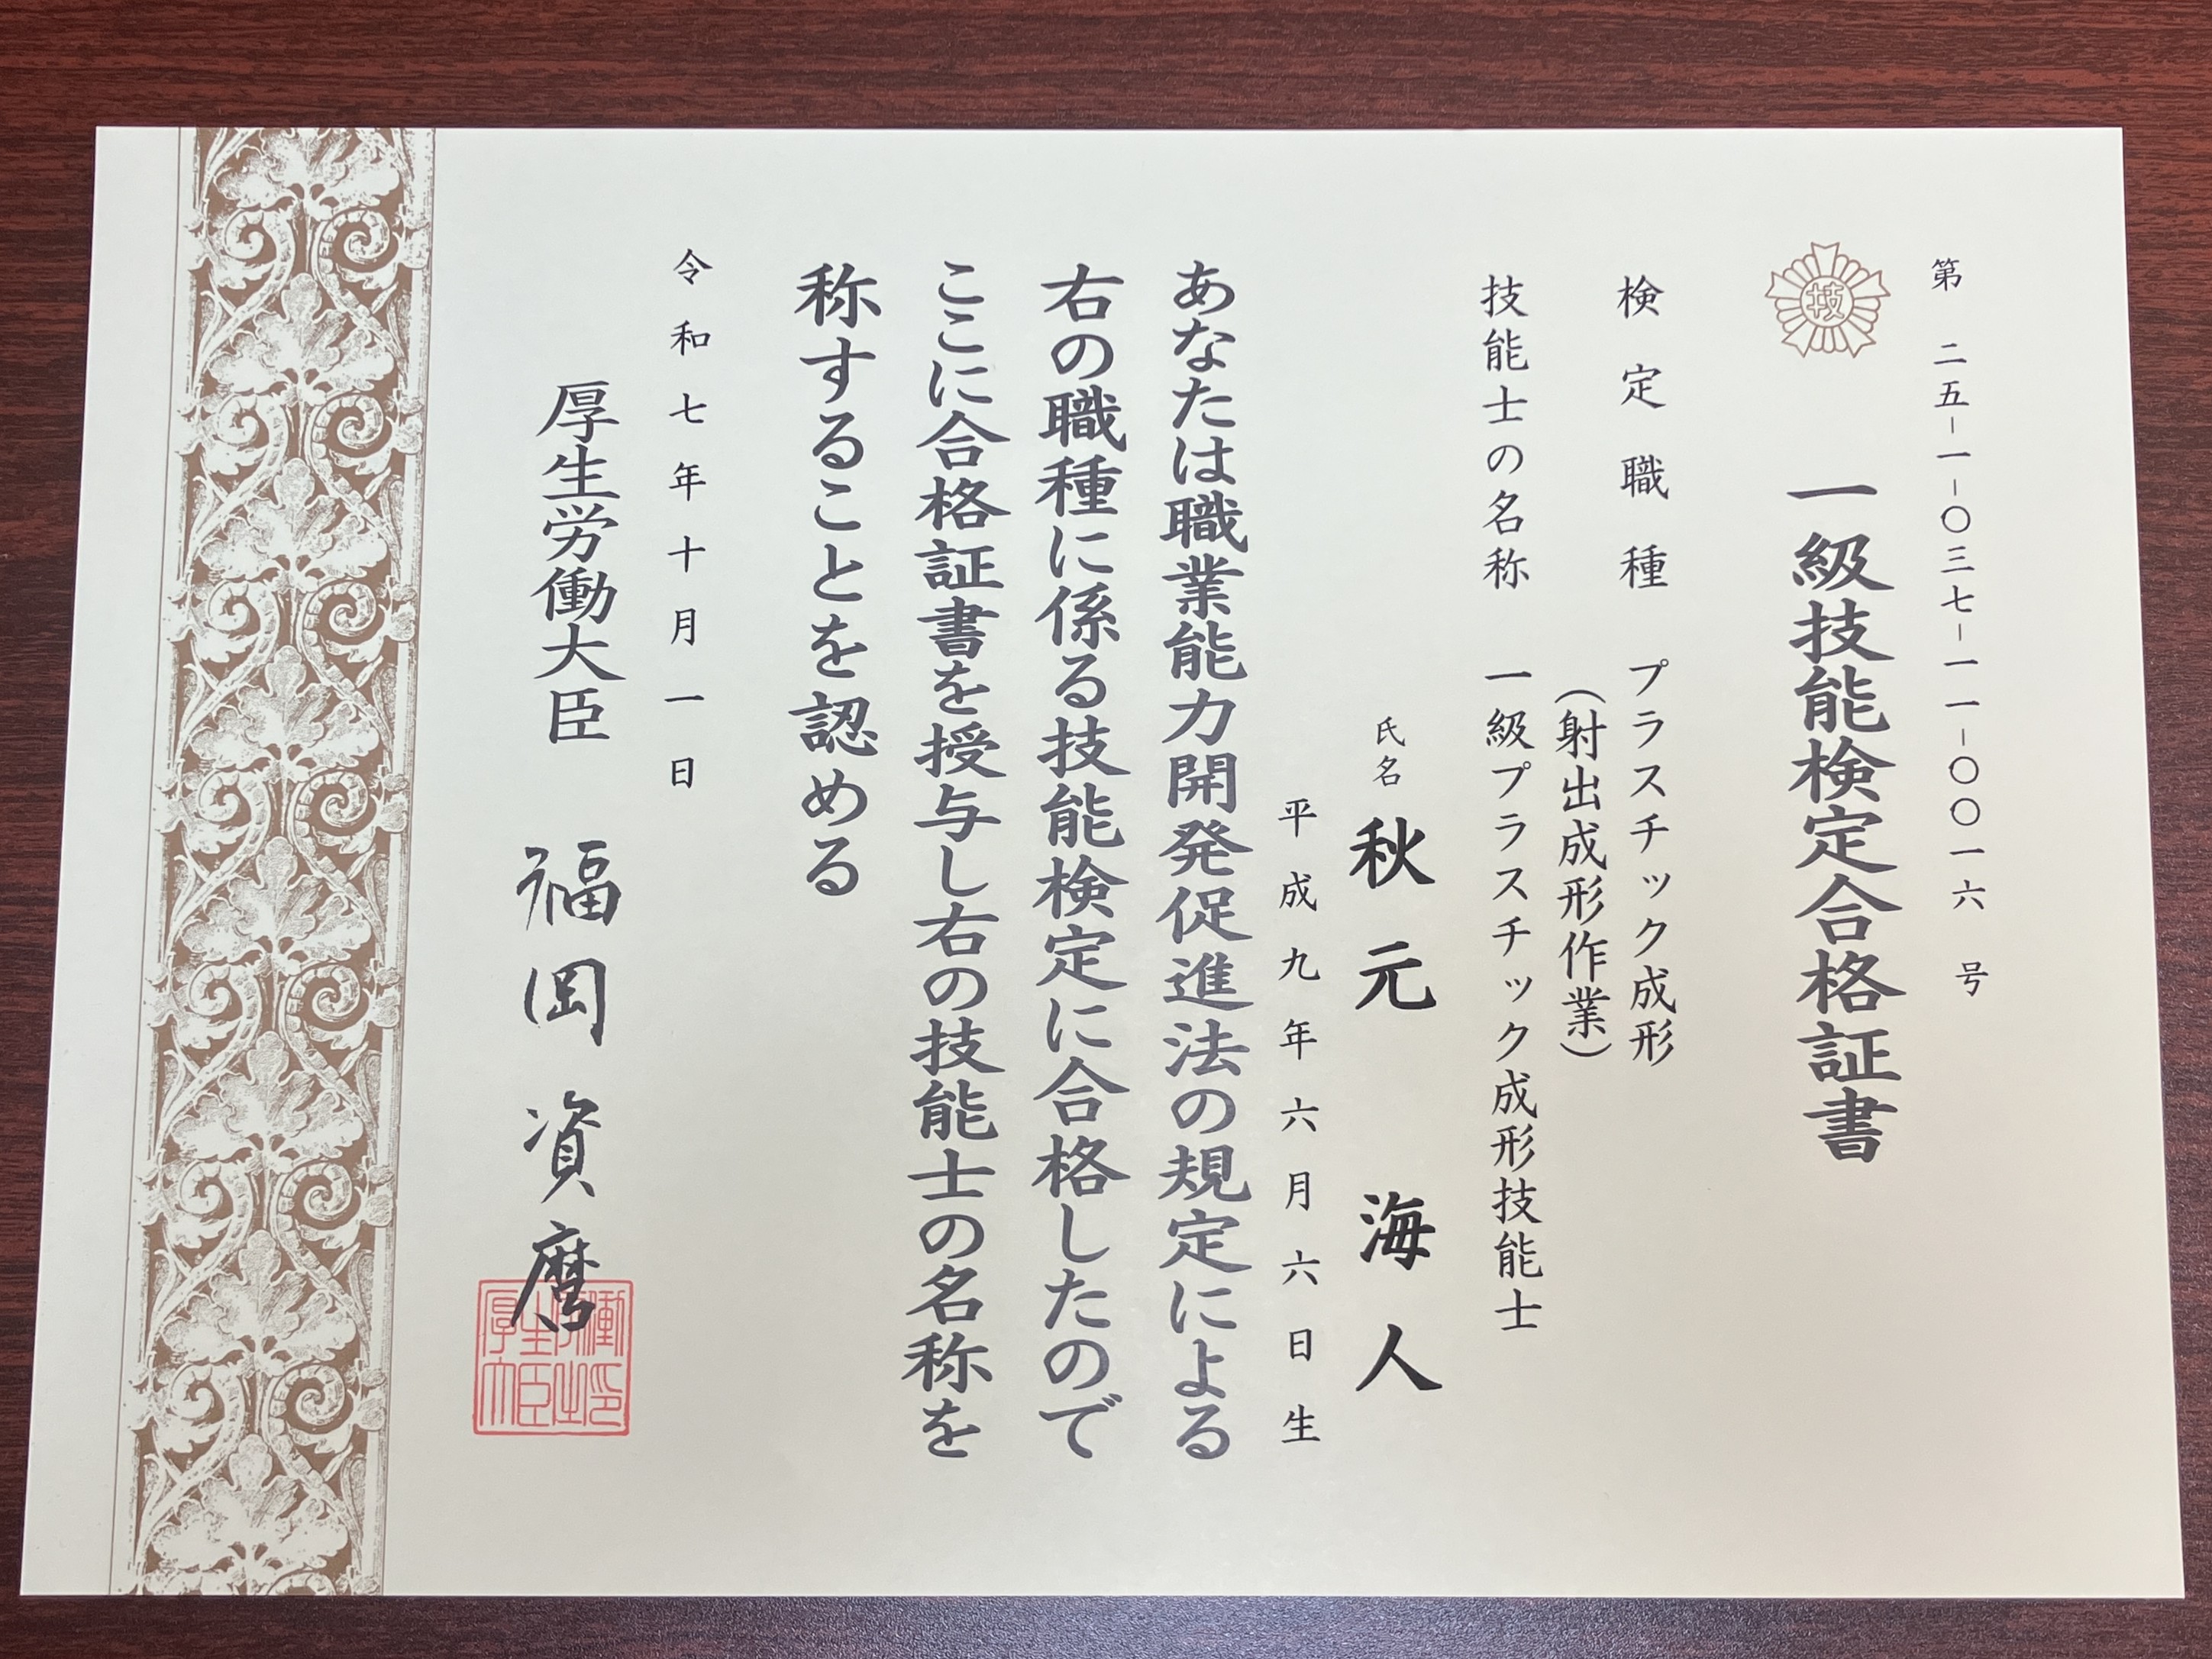 第 二五-一-〇三七-一一-〇〇一六 号
技
一級技能検定合格証書
検定職種 プラスチック成形
(射出成形作業)
技能士の名称 一級プラスチック成形技能士
氏名 秋元 海人
平成九年六月六日生
あなたは職業能力開発促進法の規定による
右の職種に係る技能検定に合格したので
ここに合格証書を授与し右の技能士の名称を
称することを認める
令和七年十月一日
厚生労働大臣 福岡資麿
厚生労働大臣之印